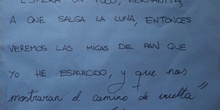 ESPERA UN POCO, HERMANITA,
A QUE SALGA LA LUNA, ENTONCES
VEREMOS LAS MIGAS DE PAN QUE
YO HE ESPARCIDO, y que nos
mostraran el camino de vuelta"